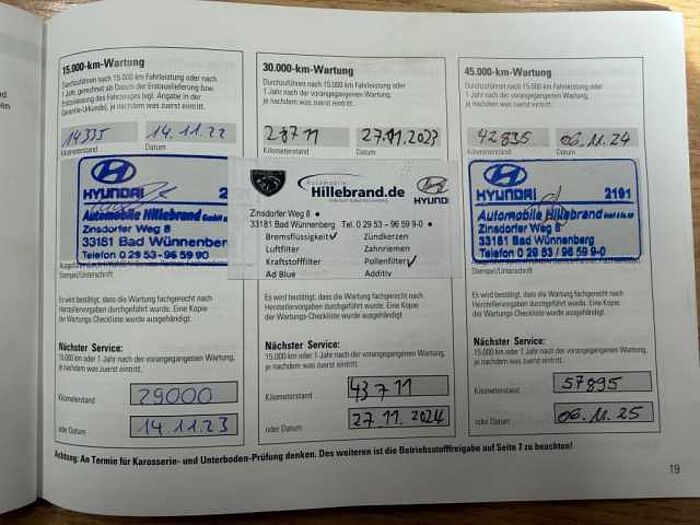 15.000-km-Wartung
Durchzuführen nach 15.000 km Fahrleistung oder nach
1 Jahr, gerechnet ab Datum der Erstauslieferung bzw.
Erstzulassung des Fahrzeuges (vgl. Angabe in der
Garantie-Urkunde), je nachdem was zuerst eintritt.
14335 14.11.22
Kilometerstand Datum
HYUNDAI 2
Automobile Hillebrand GmbH
Zinsdorfer Weg 8
33181 Bad Wünnenberg
Telefon 0 29 53 - 96 59 90
Stempel/Unterschrift
Es wird bestätigt, dass die Wartung fachgerecht nach
Herstellervorgaben durchgeführt wurde. Eine Kopie
der Wartungs-Checkliste wurde ausgehändigt.
Nächster Service:
15.000 km oder 1 Jahr nach der vorangegangenen Wartung,
je nachdem was zuerst eintritt.
Kilometerstand 29000
oder Datum 14.11.23
30.000-km-Wartung
Durchzuführen nach 15.000 km Fahrleistung oder
1 Jahr nach der vorangegangenen Wartung,
je nachdem was zuerst eintritt.
28711 27.11.2023
Kilometerstand Datum
Automobile
Hillebrand.de
HYUNDAI
Zinsdorfer Weg 8 •
33181 Bad Wünnenberg Tel. 0 29 53 - 96 59 9-0 •
Bremsflüssigkeit ✓ Zündkerzen
Luftfilter Zahnriemen
Kraftstofffilter Pollenfilter ✓
Ad Blue Additiv
Stempel/Unterschrift
Es wird bestätigt, dass die Wartung fachgerecht nach
Herstellervorgaben durchgeführt wurde. Eine Kopie
der Wartungs-Checkliste wurde ausgehändigt.
Nächster Service:
15.000 km oder 1 Jahr nach der vorangegangenen Wartung,
je nachdem was zuerst eintritt.
Kilometerstand 43711
oder Datum 27.11.2024
45.000-km-Wartung
Durchzuführen nach 15.000 km Fahrleistung oder
1 Jahr nach der vorangegangenen Wartung,
je nachdem was zuerst eintritt.
42895 06.11.24
Kilometerstand Datum
HYUNDAI 2191
Automobile Hillebrand
Zinsdorfer Weg 8
33181 Bad Wünnenberg
Telefon 0 29 53 / 96 59 9-0
Stempel/Unterschrift
Es wird bestätigt, dass die Wartung fachgerecht nach
Herstellervorgaben durchgeführt wurde. Eine Kopie
der Wartungs-Checkliste wurde ausgehändigt.
Nächster Service:
15.000 km oder 1 Jahr nach der vorangegangenen Wartung,
je nachdem was zuerst eintritt.
Kilometerstand 57895
oder Datum 06.11.25
Achtung: An Termin für Karosserie- und Unterboden-Prüfung denken. Des weiteren ist die Betriebsstofffreigabe auf Seite 7 zu beachten!
19